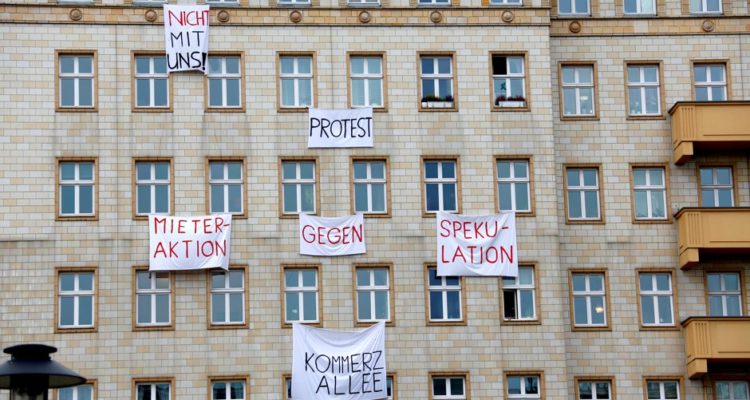 NICHT
MIT
UNS!
PROTEST
MIETER-
AKTION
GEGEN
SPEKU-
LATION
KOMMERZ
ALLEE